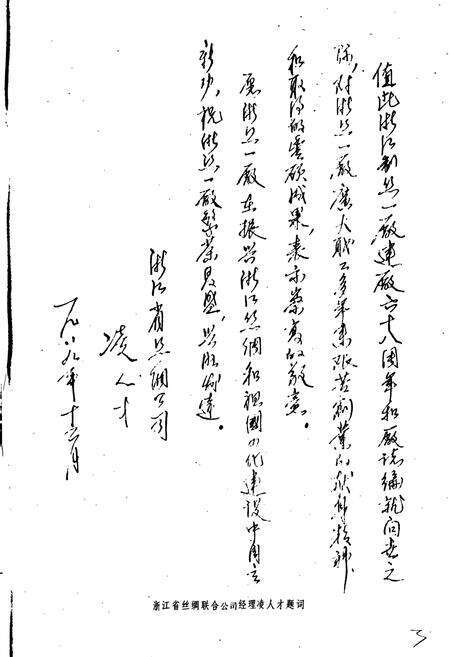 值此浙江制丝一廠建廠六十八周年和廠誌編就问世之
际，对浙丝一廠廣大职工多年来艰苦創業的献身精神
和取得的豊硕成果，表示崇高的敬意。
愿浙丝一廠在振兴浙江丝绸和祖國四化建设中再立
新功，祝浙丝一廠繁荣昌盛，兴旺发達。
浙江省丝绸公司
凌人才
一九八九年十二月
浙江省丝绸联合公司经理凌人才题词
3